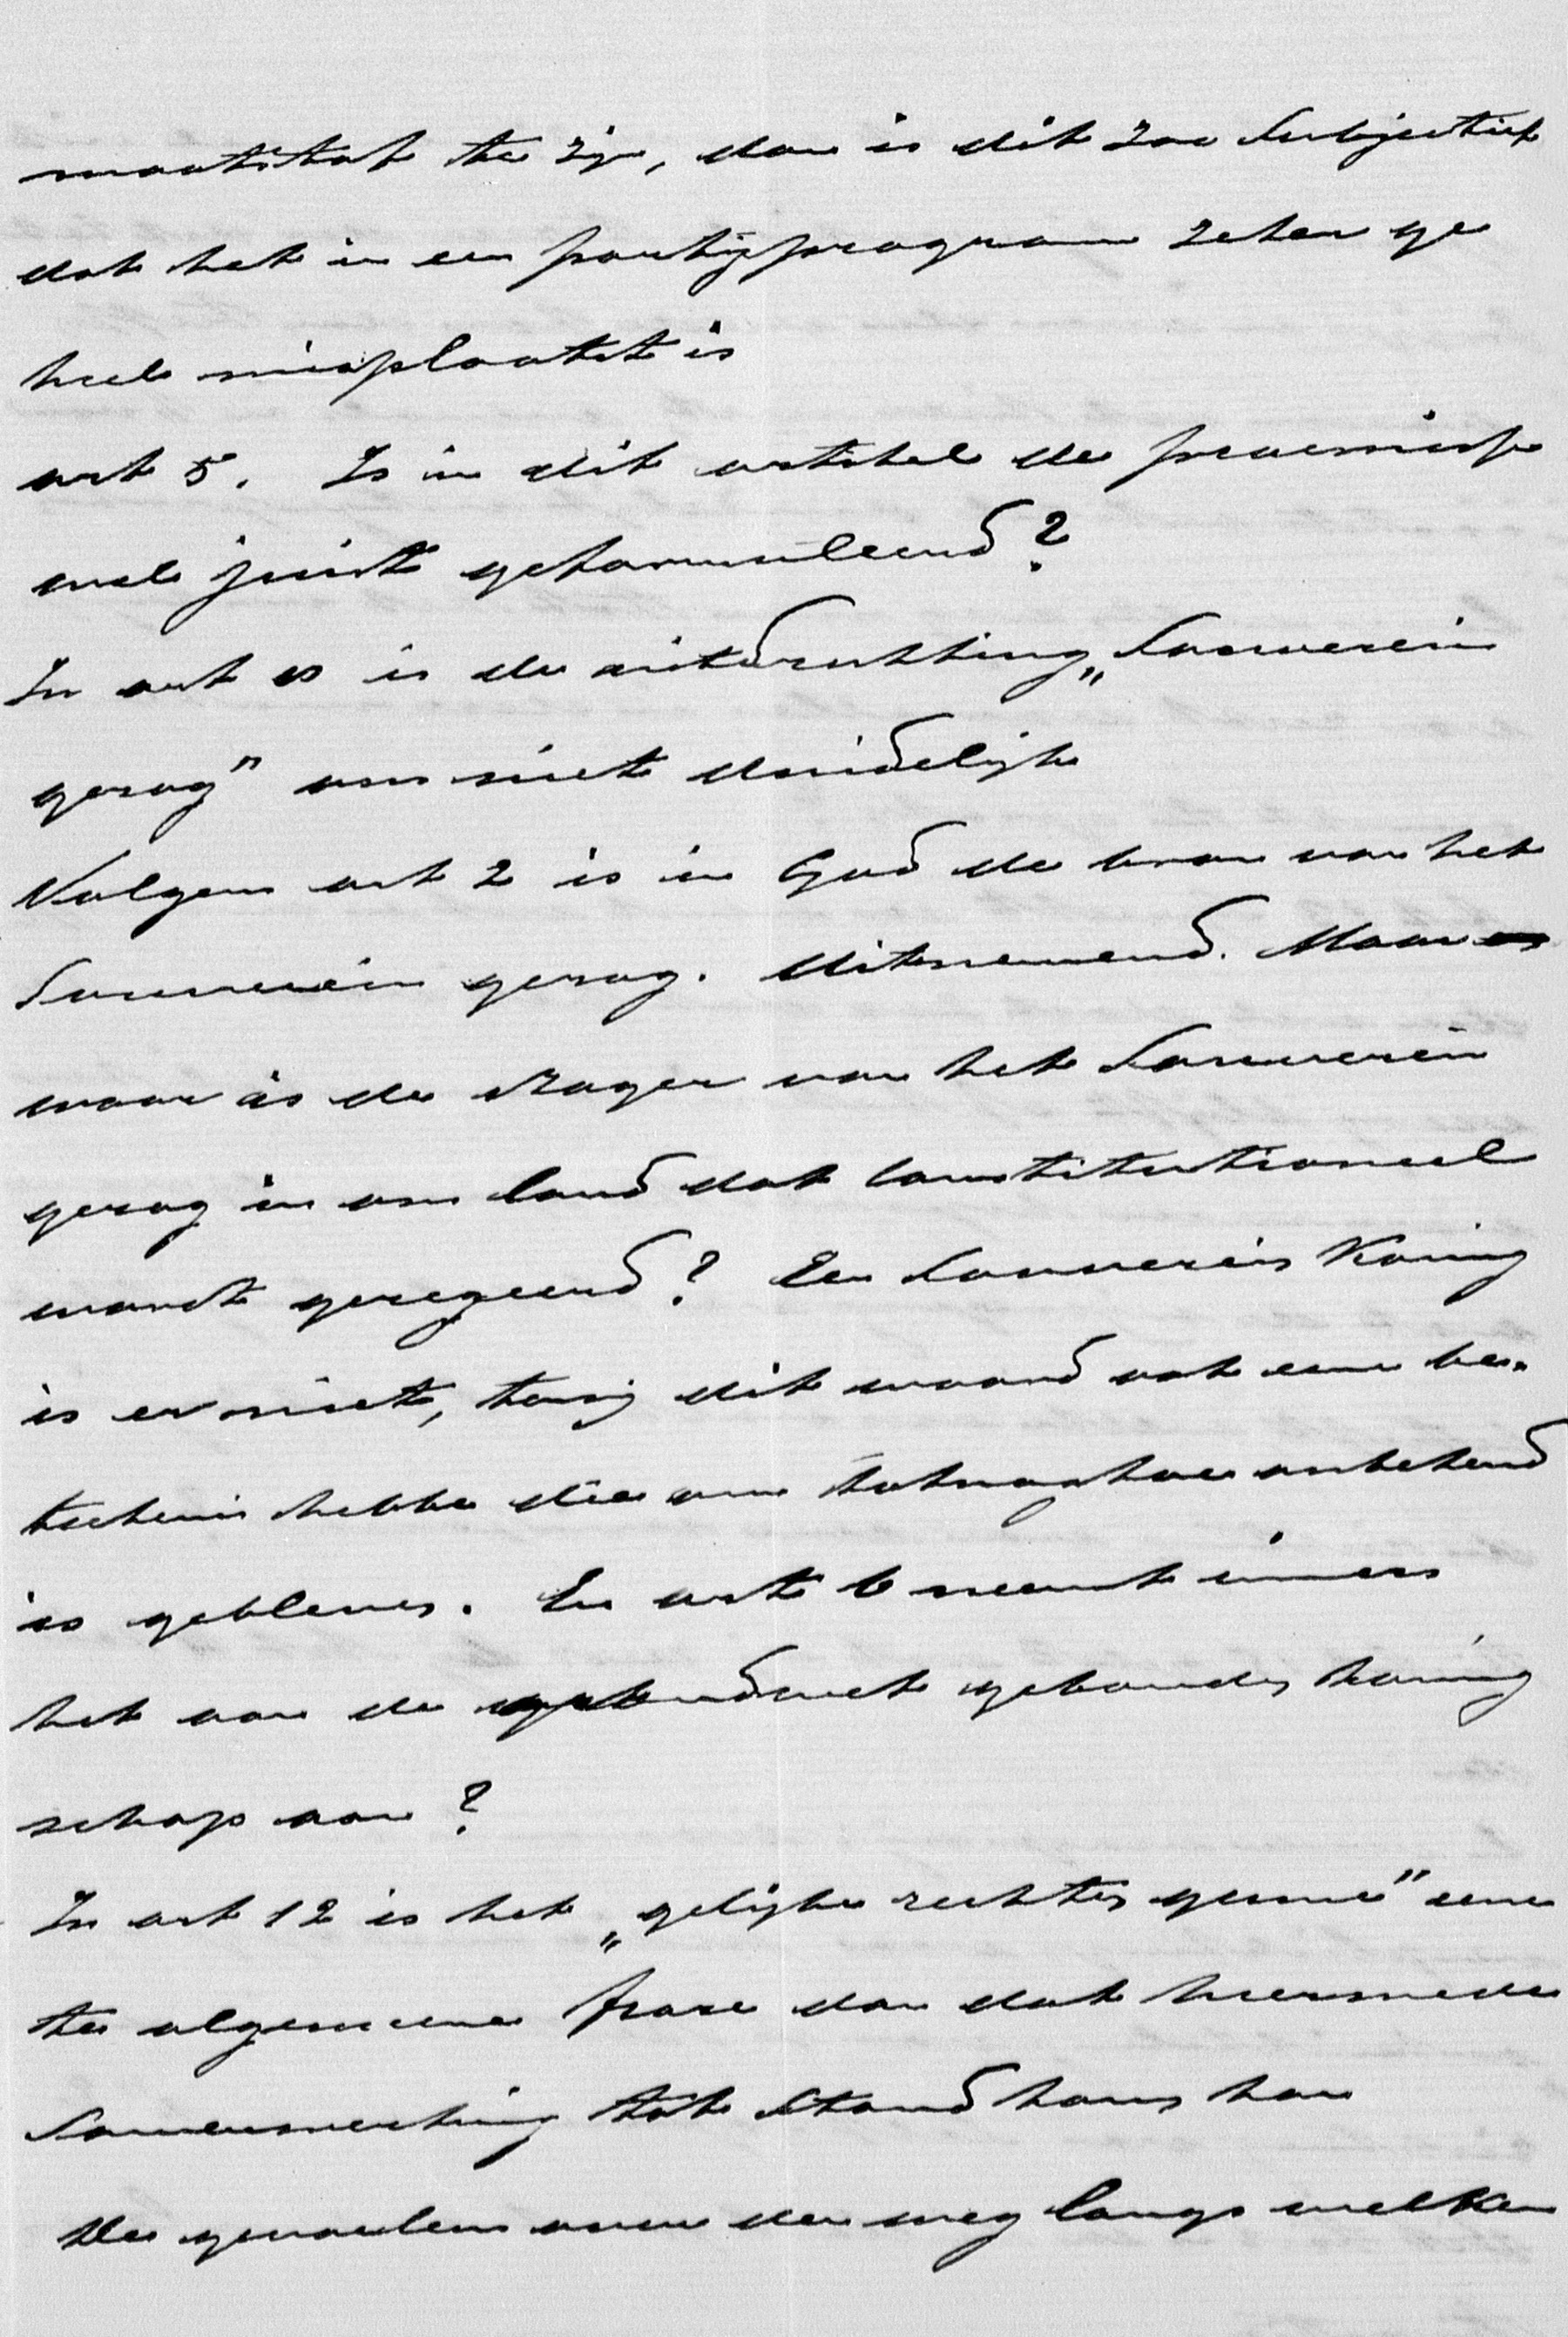 maatstaf te zijn, dan is dit zoo Subjectief
dat het in een partijprogram zeker ge
heel misplaatst is
art 5. Is in dit artikel de praemisse
wel juist geformuleerd?
In art is de uitdrukking „Souverein
gezag" ons niet duidelijk
Volgens art 2 is in God de bron van het
Souverein gezag. Uitnemend. Maar
waar is de drager van het Souverein
gezag in ons land dat Constitutioneel
wordt geregeerd? Een Souverein Koning
is er niet, tenzij dit woord ook eene be-
teekenis hebbe die ons totnogtoe onbekend
is gebleven. En art 6 neemt immers
het aan de gebonden koning
schap aan?
In art 12 is het „gelijke rechten gunne" eene
te algemeene frase dan dat hiermede
Samenwerking tot Stand komen kan
De gevoelens over den weg langs welken